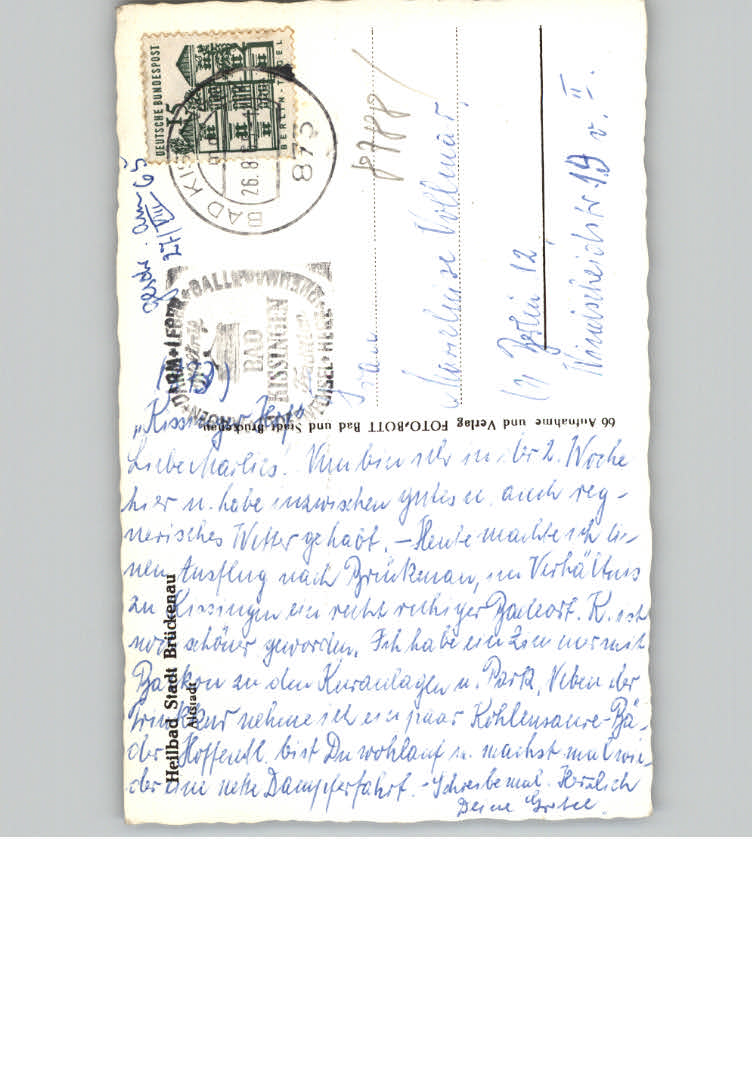 DEUTSCHE BUNDESPOST
15
BERLIN-TEGEL
873
BAD KISSINGEN
26.8
DARM LEBER GALLE
BAD
KISSINGEN
8788
27/VIII 65
Frau
Marieluise Vollmar
(1) Berlin 12
19 v. II.
66 Aufnahme und Verlag FOTO-BOTT Bad und Stadt Brückenau
Heilbad Stadt Brückenau
Altstadt
"Kissinger Hof"
Liebe Marlies! Nun bin ich in der 2. Woche
hier u. habe inzwischen gutes u. auch reg-
nerisches Wetter gehabt. – Heute machte ich ei-
nen Ausflug nach Brückenau, im Verhältnis
zu Kissingen ein recht ruhiger Badeort. K. ist
noch schöner geworden. Ich habe ein Zimmer mit
Balkon zu den Kuranlagen u. Park. Neben der
Trinkkur nehme ich ein paar Kohlensäure-Bä-
der. Hoffentl. bist Du wohlauf u. machst mal wie-
der eine nette Dampferfahrt. – Schreibe mal. Herzlich
Deine Gretel.